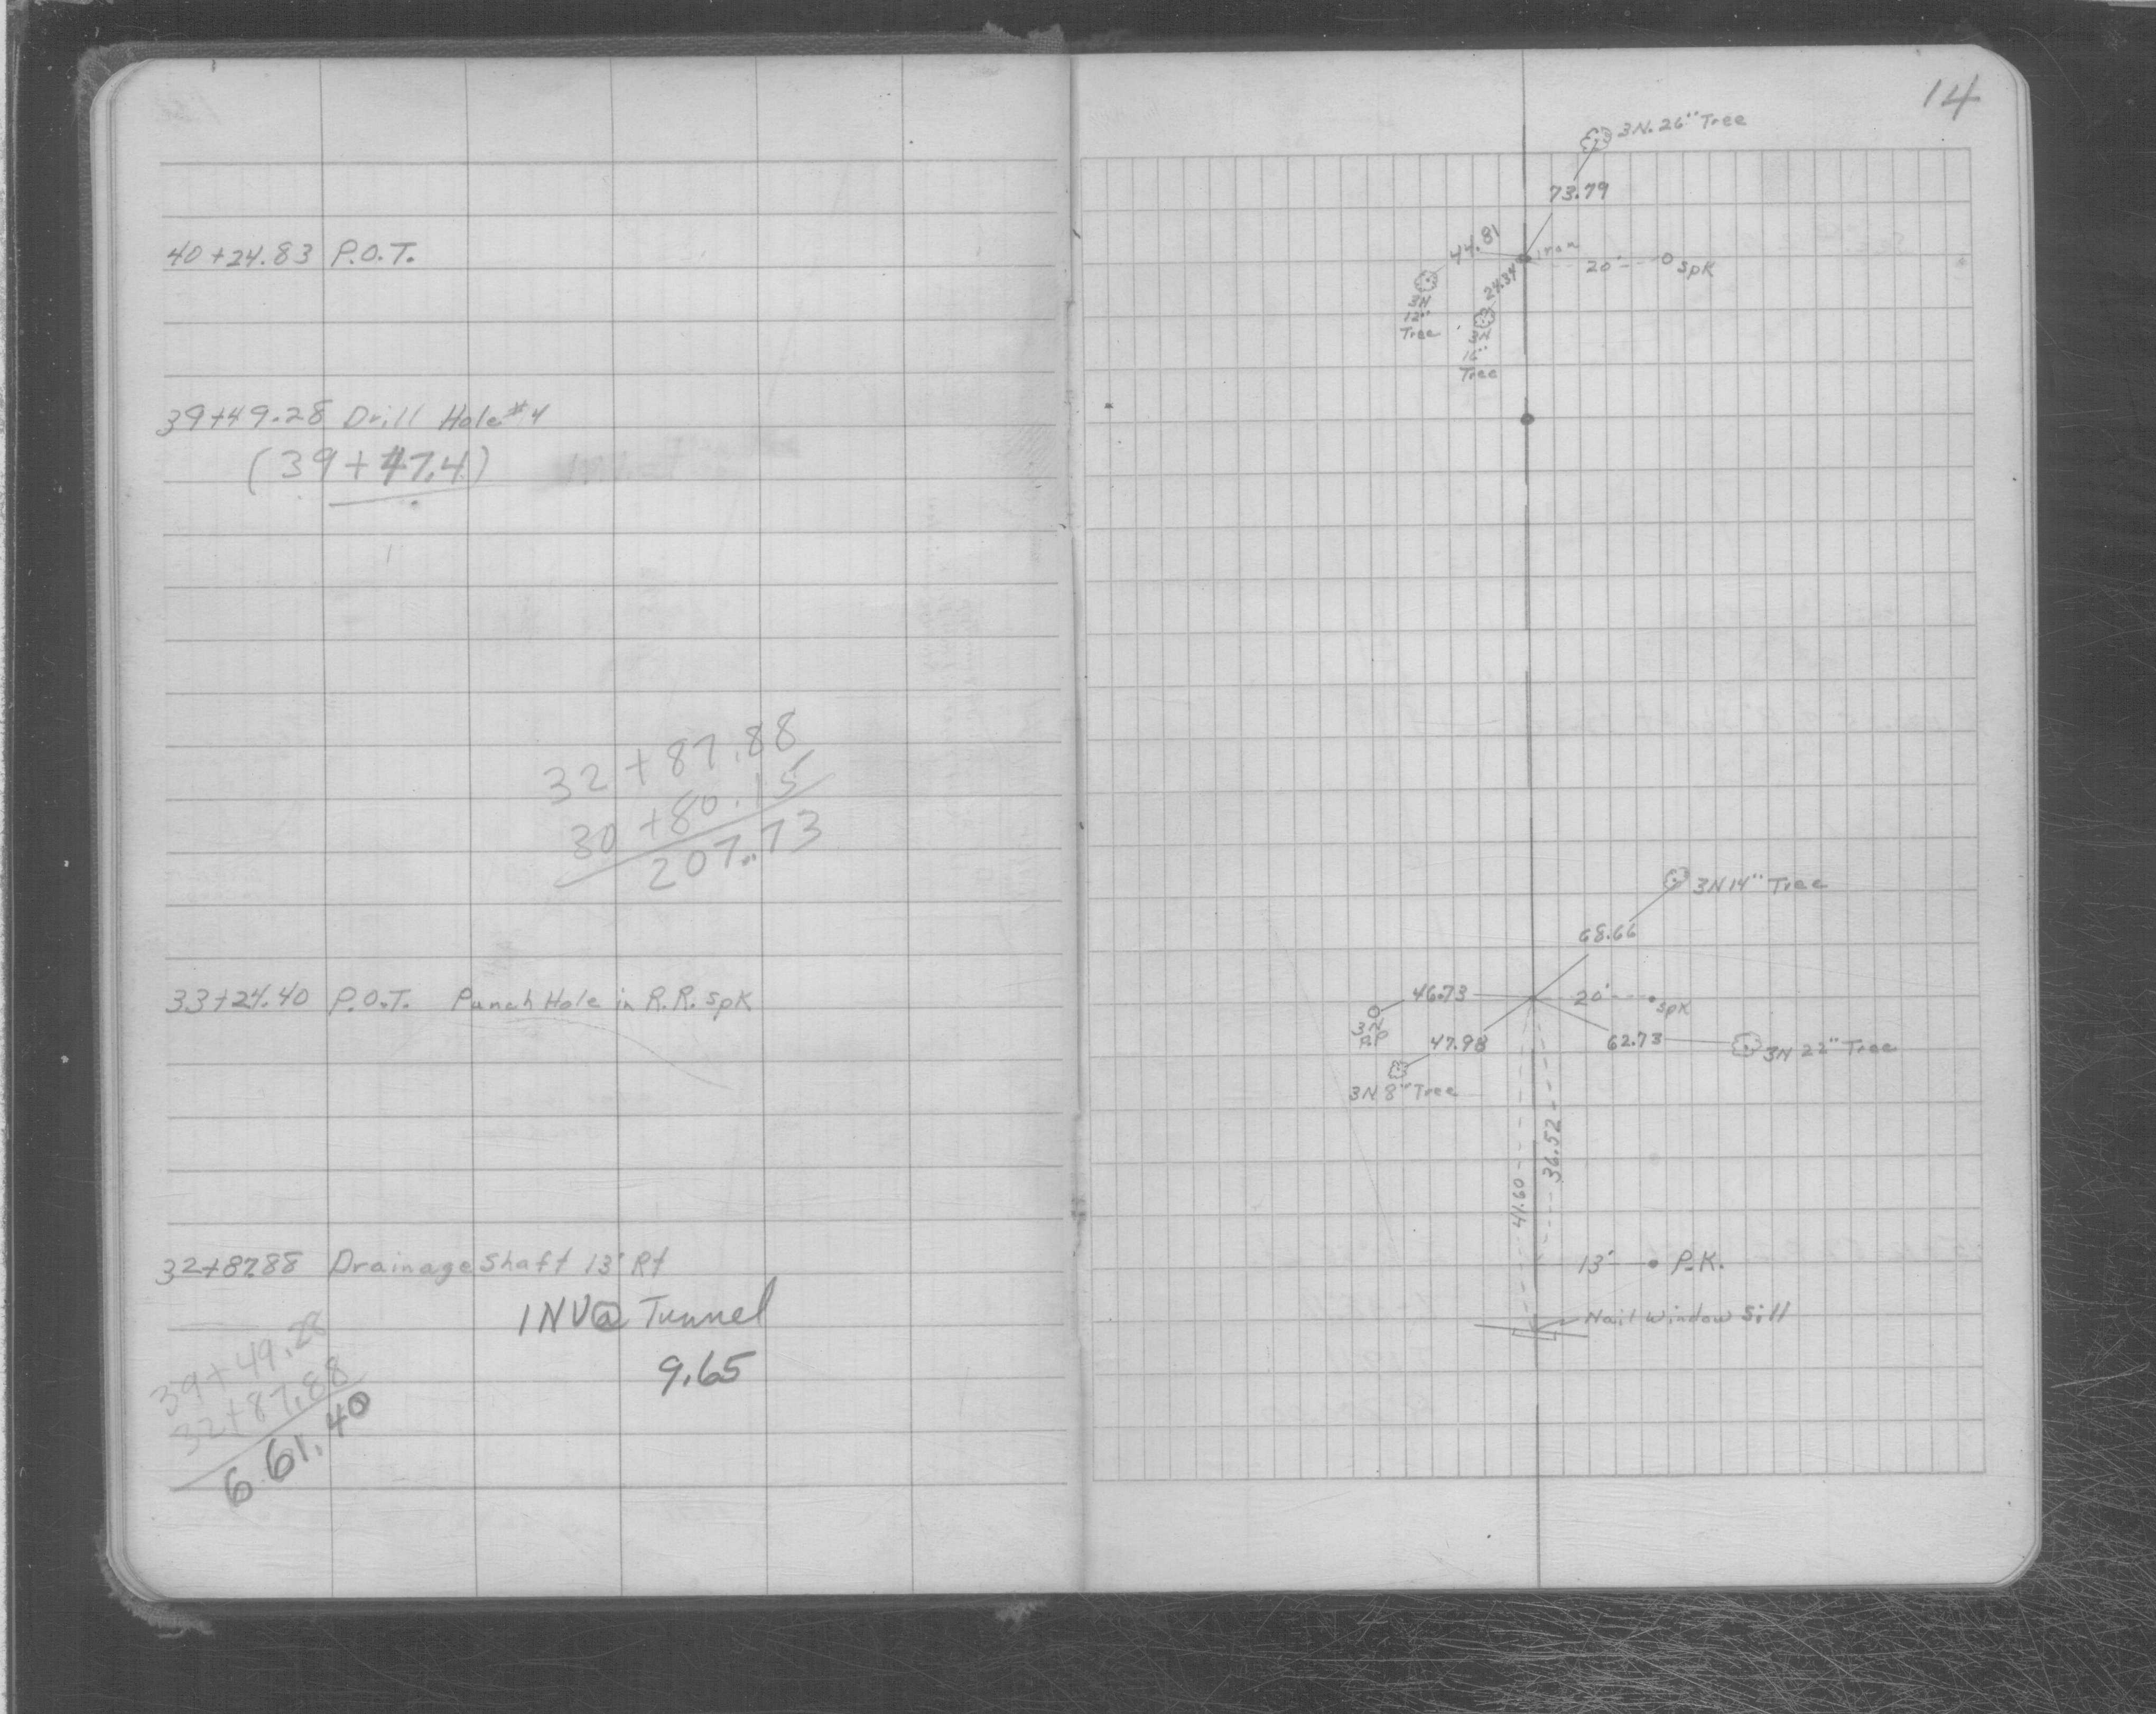 40+24.83 P.O.T.
39+49.28 Drill Hole #4
(39+47.4)
32+87.88
30+80.15
207.73
33+24.40 P.O.T. Punch Hole in R.R. Spk
32+87.88 Drainage Shaft 13' Rt
INV@ Tunnel
9.65
39+49.28
32+87.88
661.40
14
3N. 26" Tree
73.79
44.81
Iron
20'
Spk
24.34
3N
12"
Tree
3N
16"
Tree
3N 14" Tree
68.66
46.73
20'
Spk
3N
P.P
47.98
62.73
3N 22" Tree
3N 8" Tree
36.52
41.60
13'
P.K.
Nail Window Sill